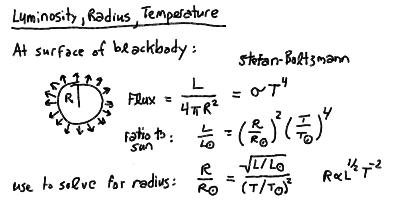 Luminosity, Radius, Temperature
At surface of blackbody:
Stefan-Boltzmann
R
Flux = L / 4πR² = σT⁴
ratio to sun: L/L⊙ = (R/R⊙)² (T/T⊙)⁴
use to solve for radius: R/R⊙ = √(L/L⊙) / (T/T⊙)² R∝L^½ T⁻²